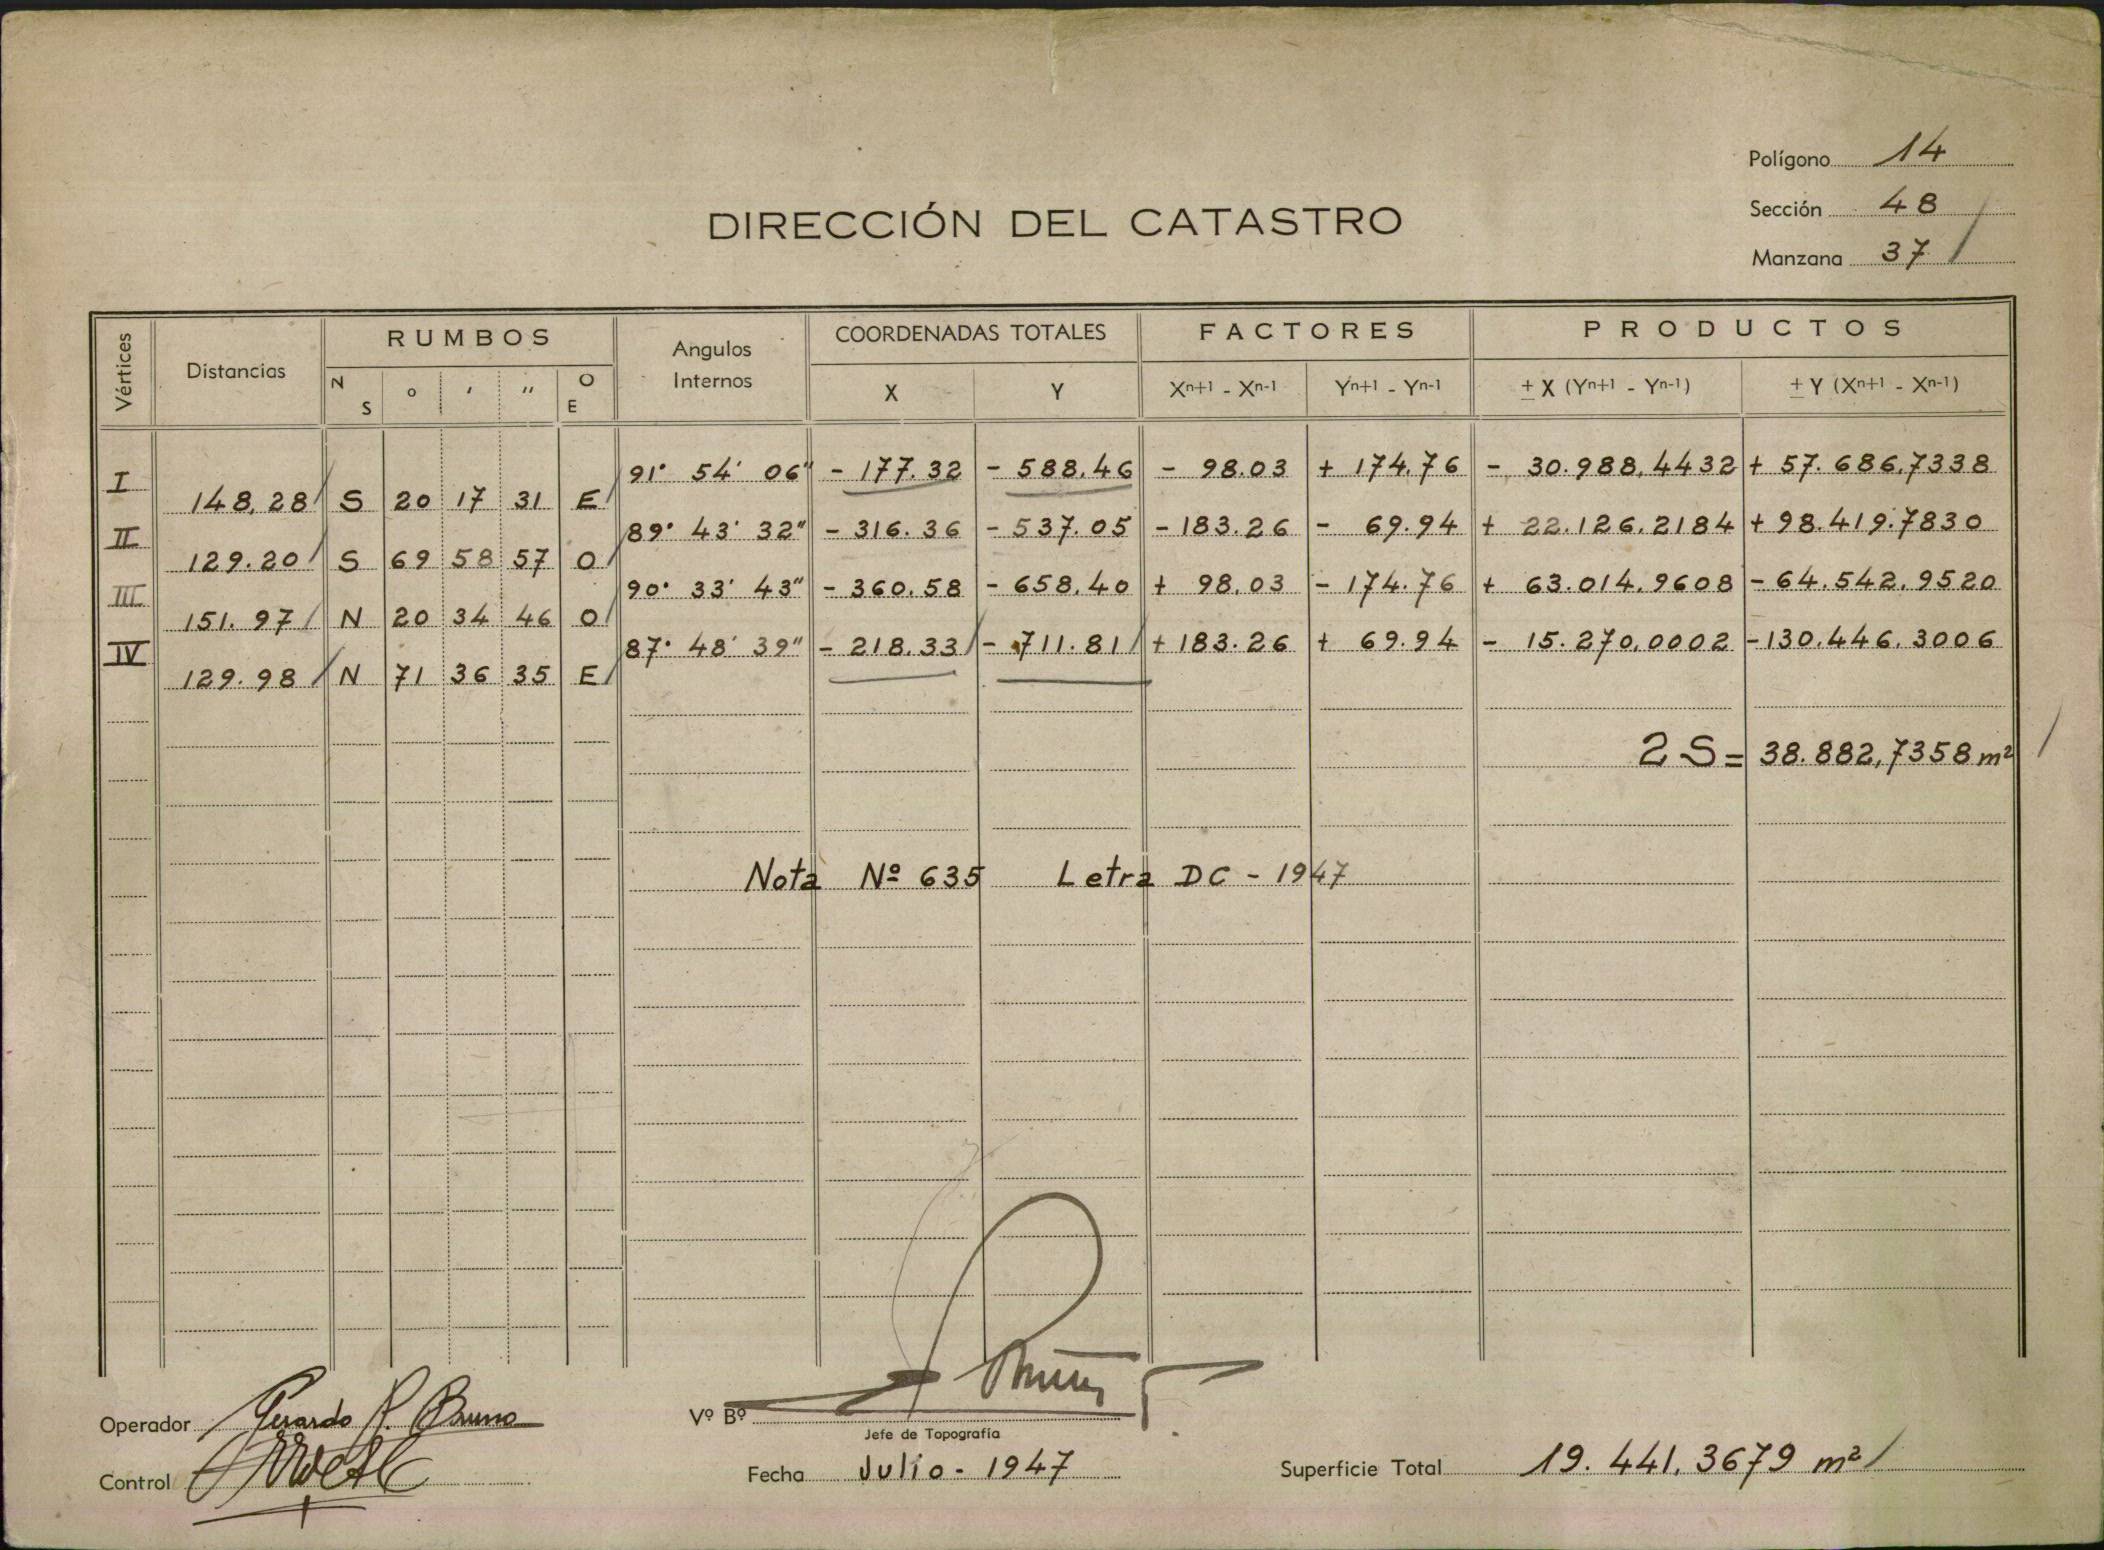 Polígono 14
Sección 48
Manzana 37
DIRECCIÓN DEL CATASTRO
Vértices Distancias RUMBOS Angulos Internos COORDENADAS TOTALES FACTORES PRODUCTOS
N S ° ' " O E X Y Xn+1 - Xn-1 Yn+1 - Yn-1 ± X (Yn+1 - Yn-1) ± Y (Xn+1 - Xn-1)
I 91° 54' 06" - 177.32 - 588.46 - 98.03 + 174.76 - 30.988,4432 + 57.686,7338
148,28 S 20 17 31 E
II 89° 43' 32" - 316.36 - 537.05 - 183.26 - 69.94 + 22.126.2184 + 98.419.7830
129.20 S 69 58 57 O
III 90° 33' 43" - 360.58 - 658.40 + 98.03 - 174.76 + 63.014.9608 - 64.542,9520
151.97 N 20 34 46 O
IV 87° 48' 39" - 218.33 - 711.81 + 183.26 + 69.94 - 15.270,0002 - 130.446.3006
129.98 N 71 36 35 E
2 S = 38.882,7358 m²
Nota Nº 635 Letra DC - 1947
Operador Gerardo R. Bruno
Vº Bº
Jefe de Topografía
Control
Fecha Julio - 1947
Superficie Total 19.441,3679 m²